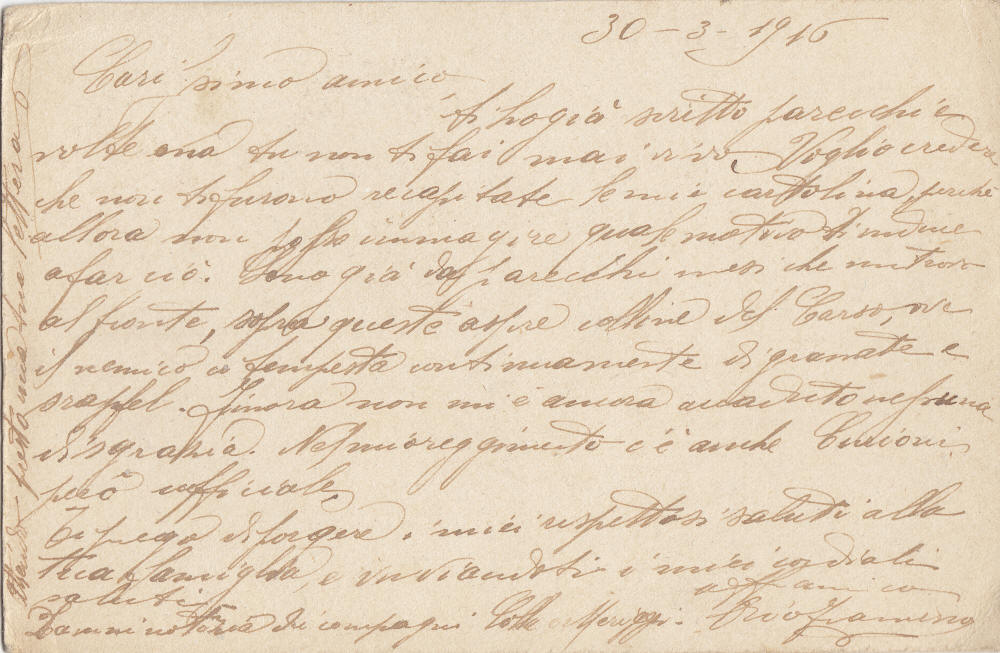 30-3-1916
Carissimo amico,
ti ho già scritto parecchie
volte ma tu non ti fai mai vivo. Voglio credere
che non ti furono recapitate le mie cartolina, perché
allora non posso immagire quale motivo ti induce
a far ciò. Sono già da parecchi mesi che mi trovo
al fronte, sopra queste aspre colline del Carso, ove
il nemico ci tempesta continuamente di granate e
srapfel. Finora non mi è ancora accaduto nessuna
disgrazia. Nel mio reggimento c'è anche Curioni
però ufficiale.
Ti prego di porgere i miei rispettosi saluti alla
tua famiglia, e inviandoti i miei cordiali
saluti aff. amico
Dammi notizia dei compagni Colli e Meriggi.
presto una tua lettera